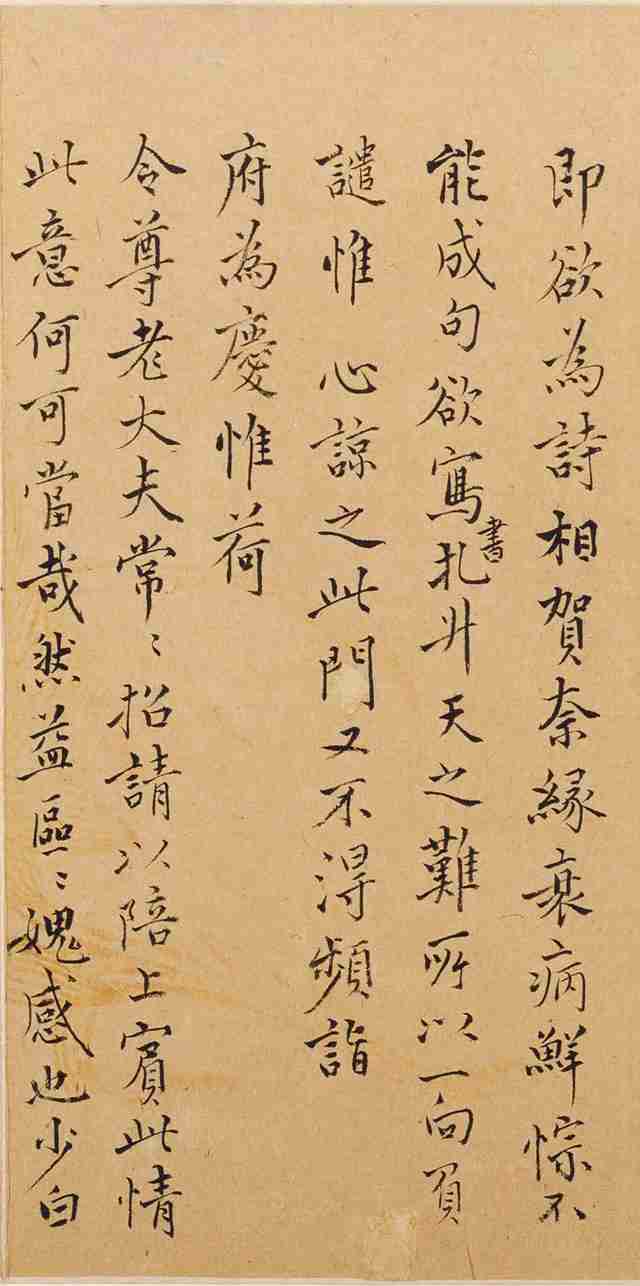 即欲為詩相賀奈緣衰病鮮悰不
能成句欲寫書札升天之難所以一向負
譴惟 心諒之此門又不得頻詣
府為慶惟荷
令尊老大夫常〻招請以陪上賓此情
此意何可當哉然益區〻媿感也少白